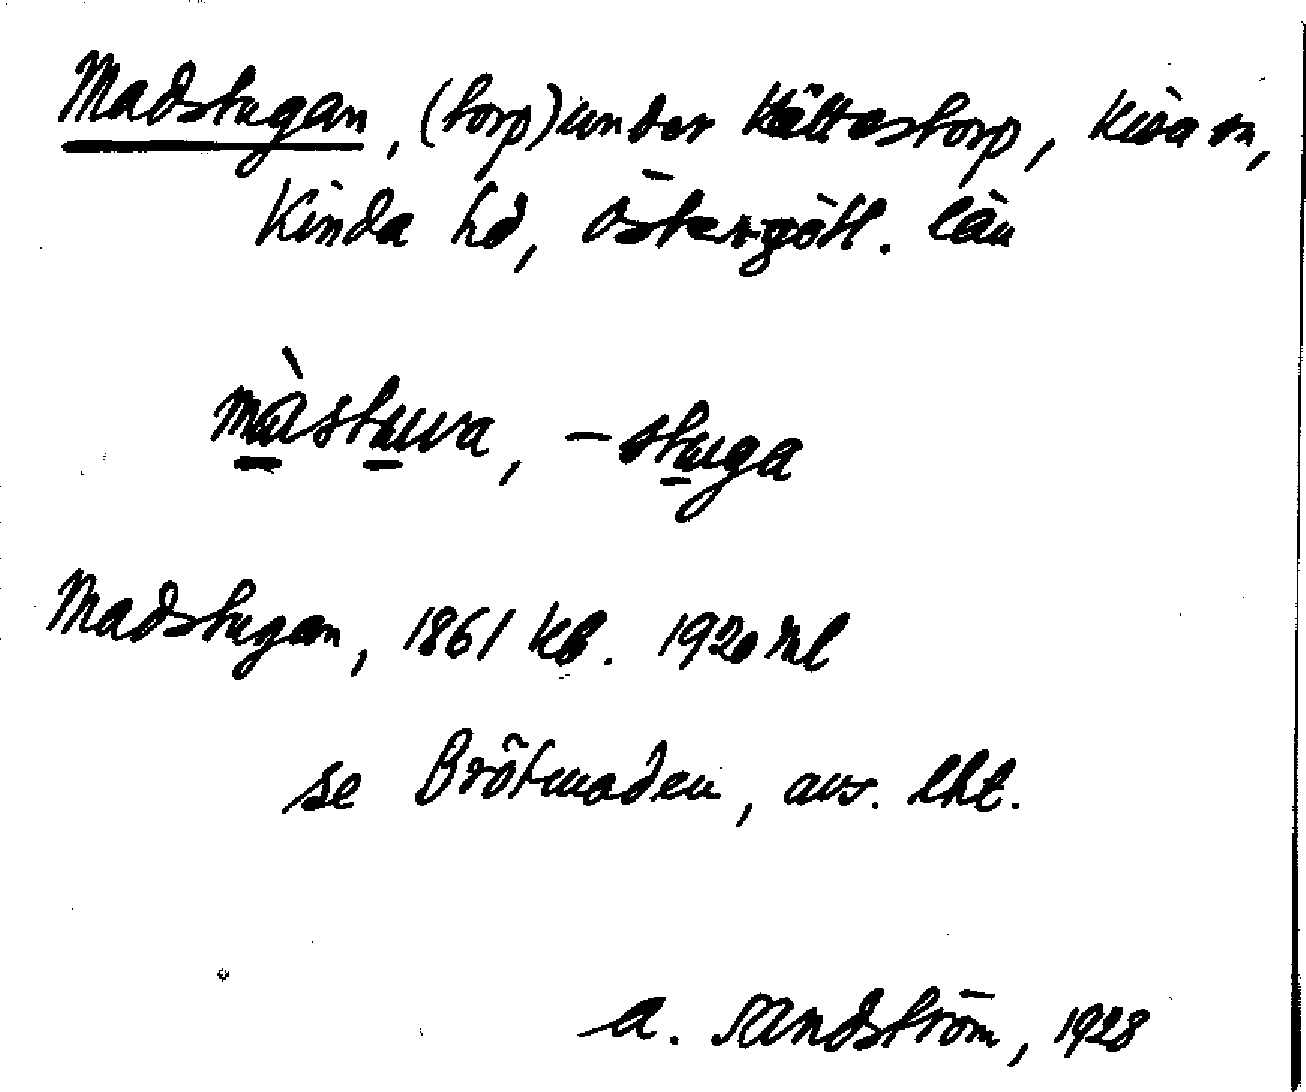 Madstugan, (torp) under Kättestorp, Kisa sn,
Kinda hd, Östergötl. län
màstuwa, -stuga
Madstugan, 1861 Kb. 1920 Ml
se Brötmaden, avs. lht.
A. Sandström, 1928